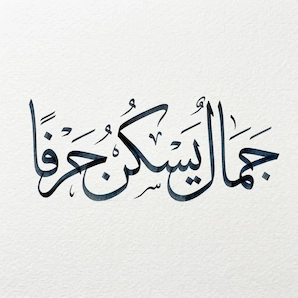 جَمَالٌ يَسْكُنُ حَرْفًا